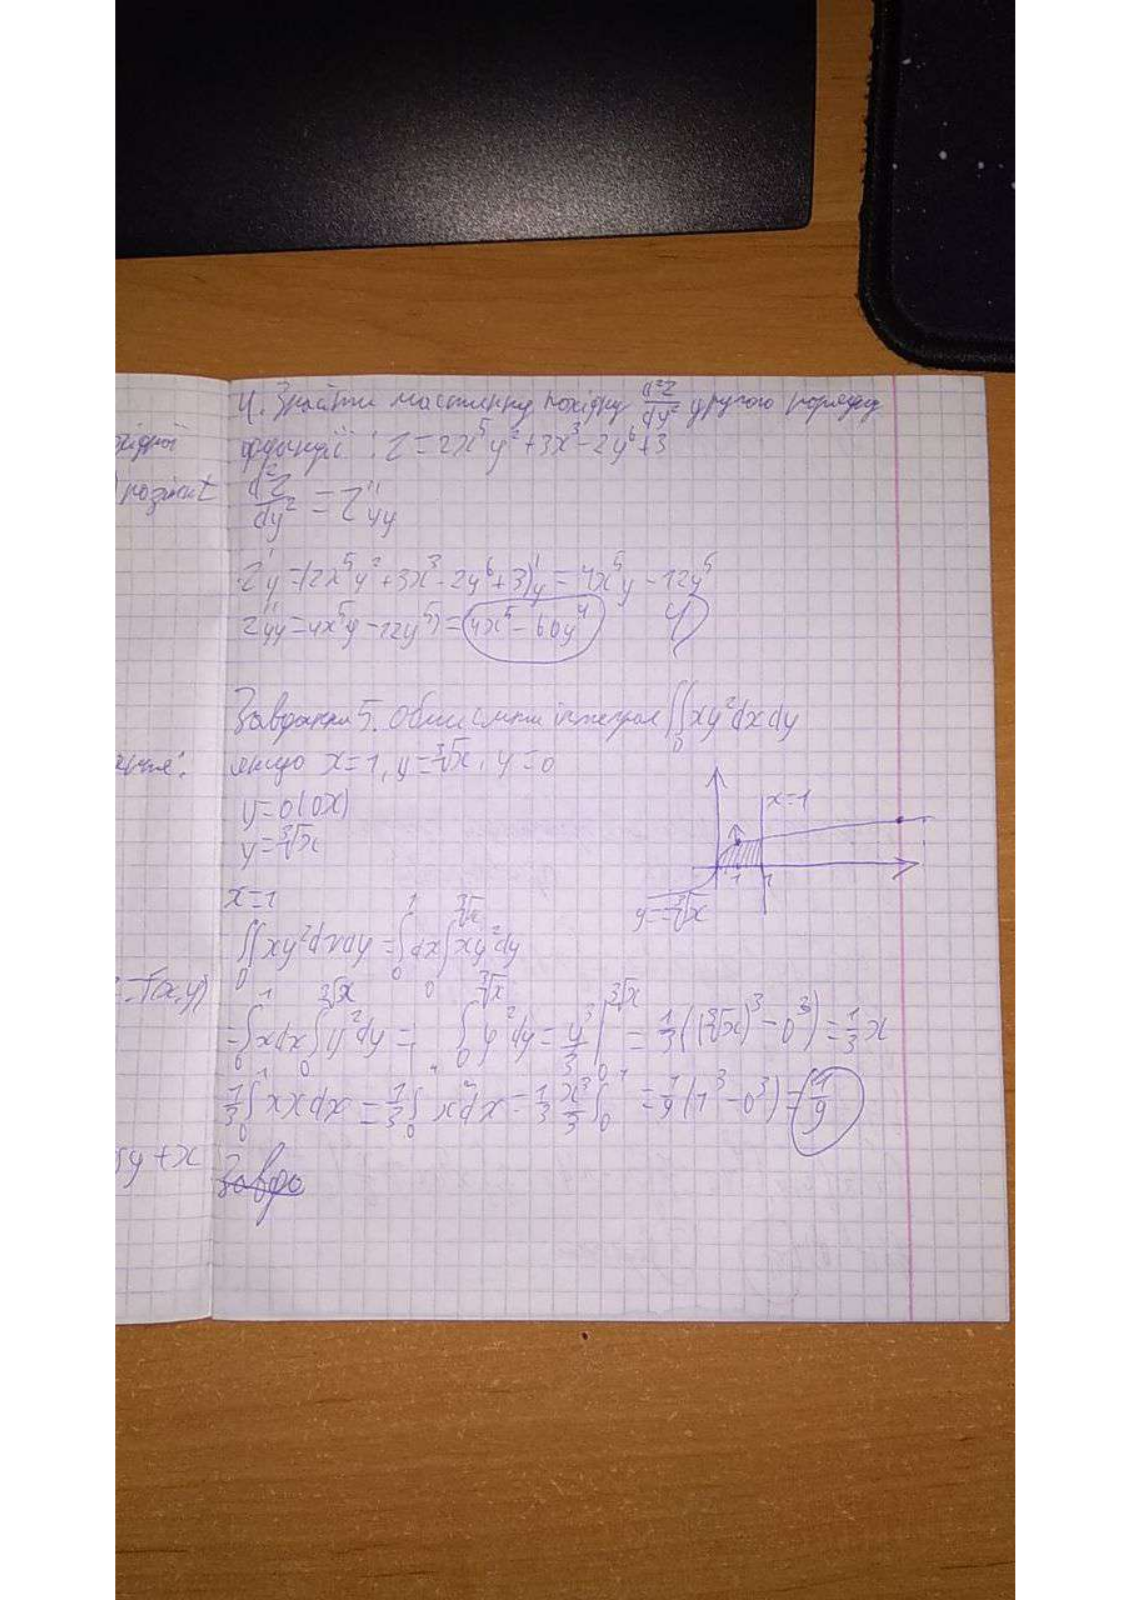 4. Знайти частинну похідну d²z/dy² другого порядку
функції : z = 2x⁵y² + 3x³ - 2y⁶ + 3
d²z/dy² = z''yy
z'y = (2x⁵y² + 3x³ - 2y⁶ + 3)'y = 4x⁵y - 12y⁵
z''yy = 4x⁵y - 12y⁵) = 4x⁵ - 60y⁴
Завдання 5. Обчислити інтеграл ∬D xy²dxdy
якщо x = 1, y = ∛x, y = 0
y = 0 (OX)
y = ∛x
x = 1
x = 1
y = ∛x
∬D xy²dxdy = ∫₀¹ dx ∫₀^∛x xy²dy
= ∫₀¹ xdx ∫₀^∛x y²dy = ∫₀^∛x y²dy = y³/3 |₀^∛x = 1/3((∛x)³ - 0³) = 1/3 x
1/3 ∫₀¹ xxdx = 1/3 ∫₀¹ x²dx = 1/3 x³/3 ∫₀¹ = 1/9 (1³ - 0³) = 1/9
= f(x,y)
y + x